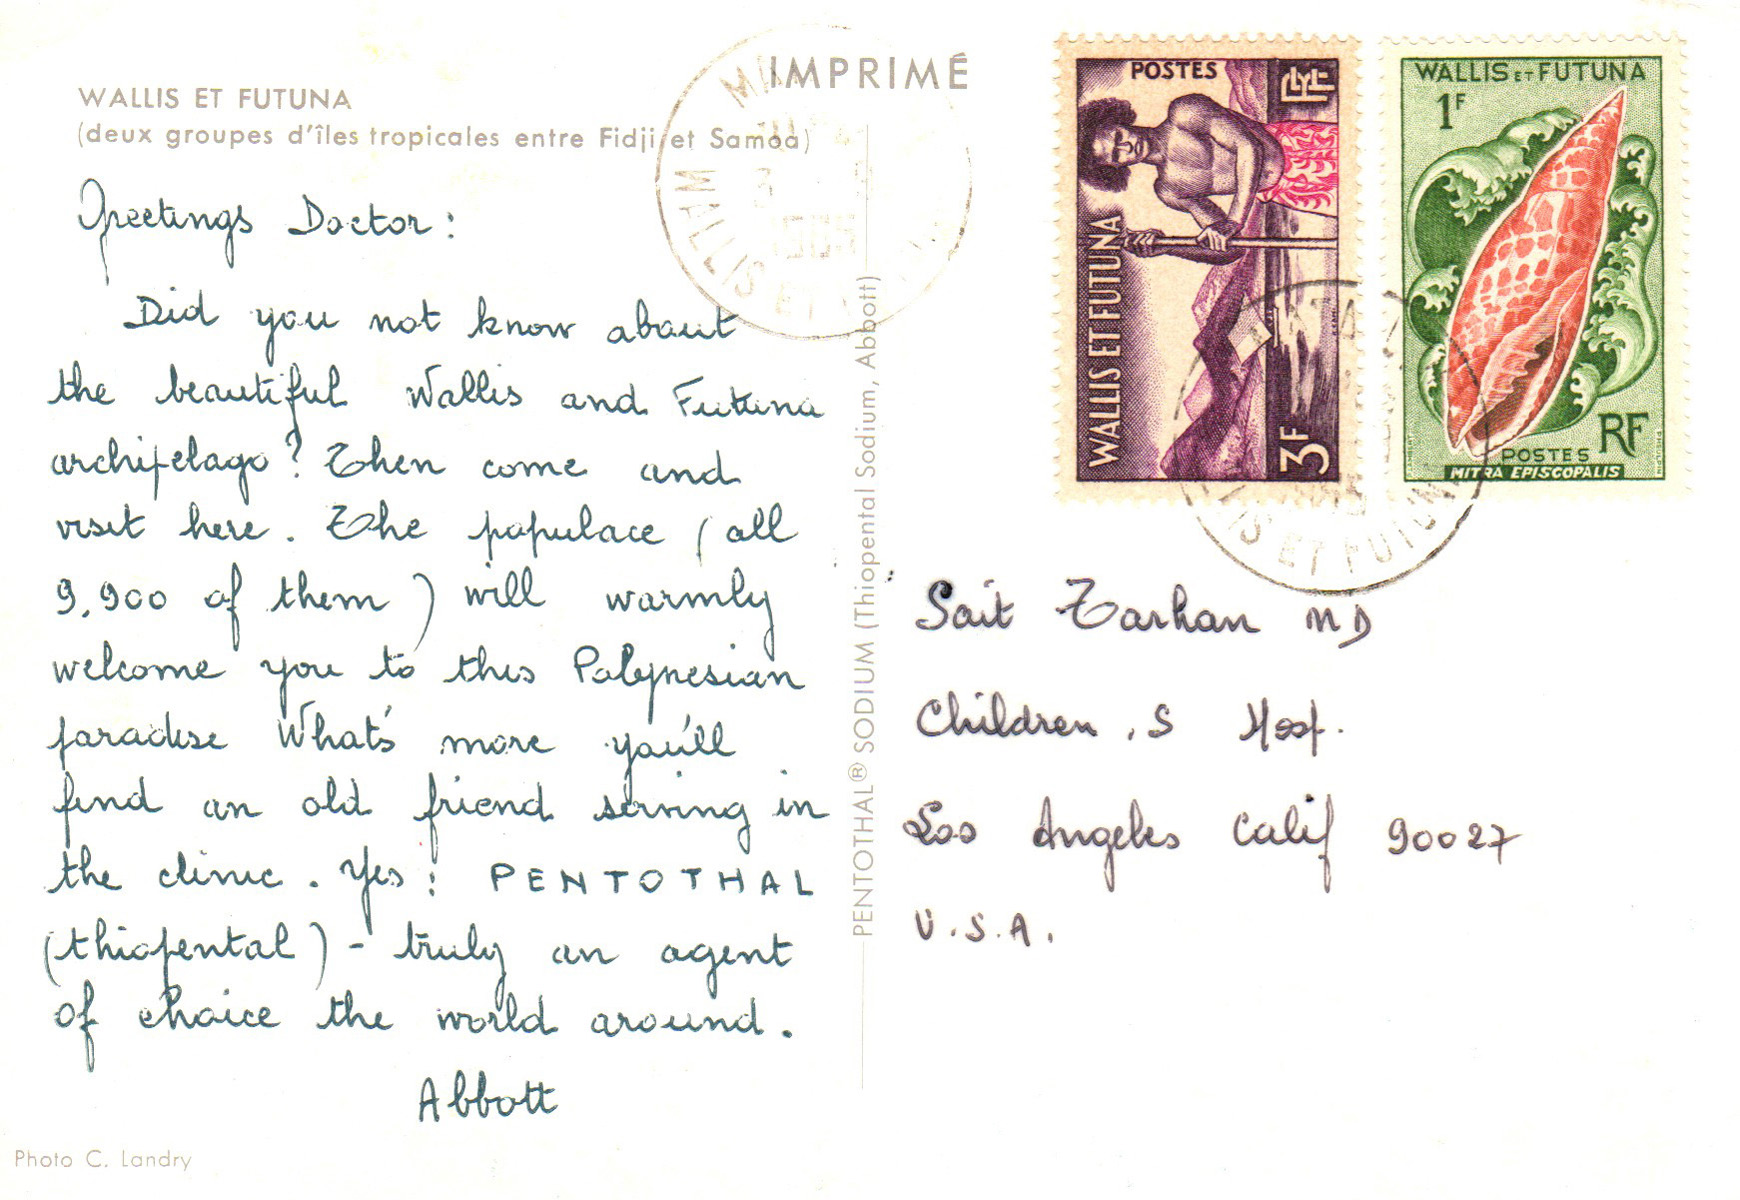 WALLIS ET FUTUNA
(deux groupes d'îles tropicales entre Fidji et Samoa)
Greetings Doctor:
Did you not know about
the beautiful Wallis and Futuna
archipelago? Then come and
visit here. The populace (all
9,900 of them) will warmly
welcome you to this Polynesian
paradise What's more you'll
find an old friend serving in
the clinic. Yes: PENTOTHAL
(thiopental) - truly an agent
of choice the world around.
Abbott
Photo C. Landry
PENTOTHAL® SODIUM (Thiopental Sodium, Abbott)
IMPRIMÉ
WALLIS ET FUTUNA
POSTES
RF
WALLIS ET FUTUNA
3F
WALLIS ET FUTUNA
1F
RF
POSTES
MITRA EPISCOPALIS
LIS ET FUTUN
Sait Tarhan MD
Children,s Hosp.
Los Angeles Calif 90027
U.S.A.